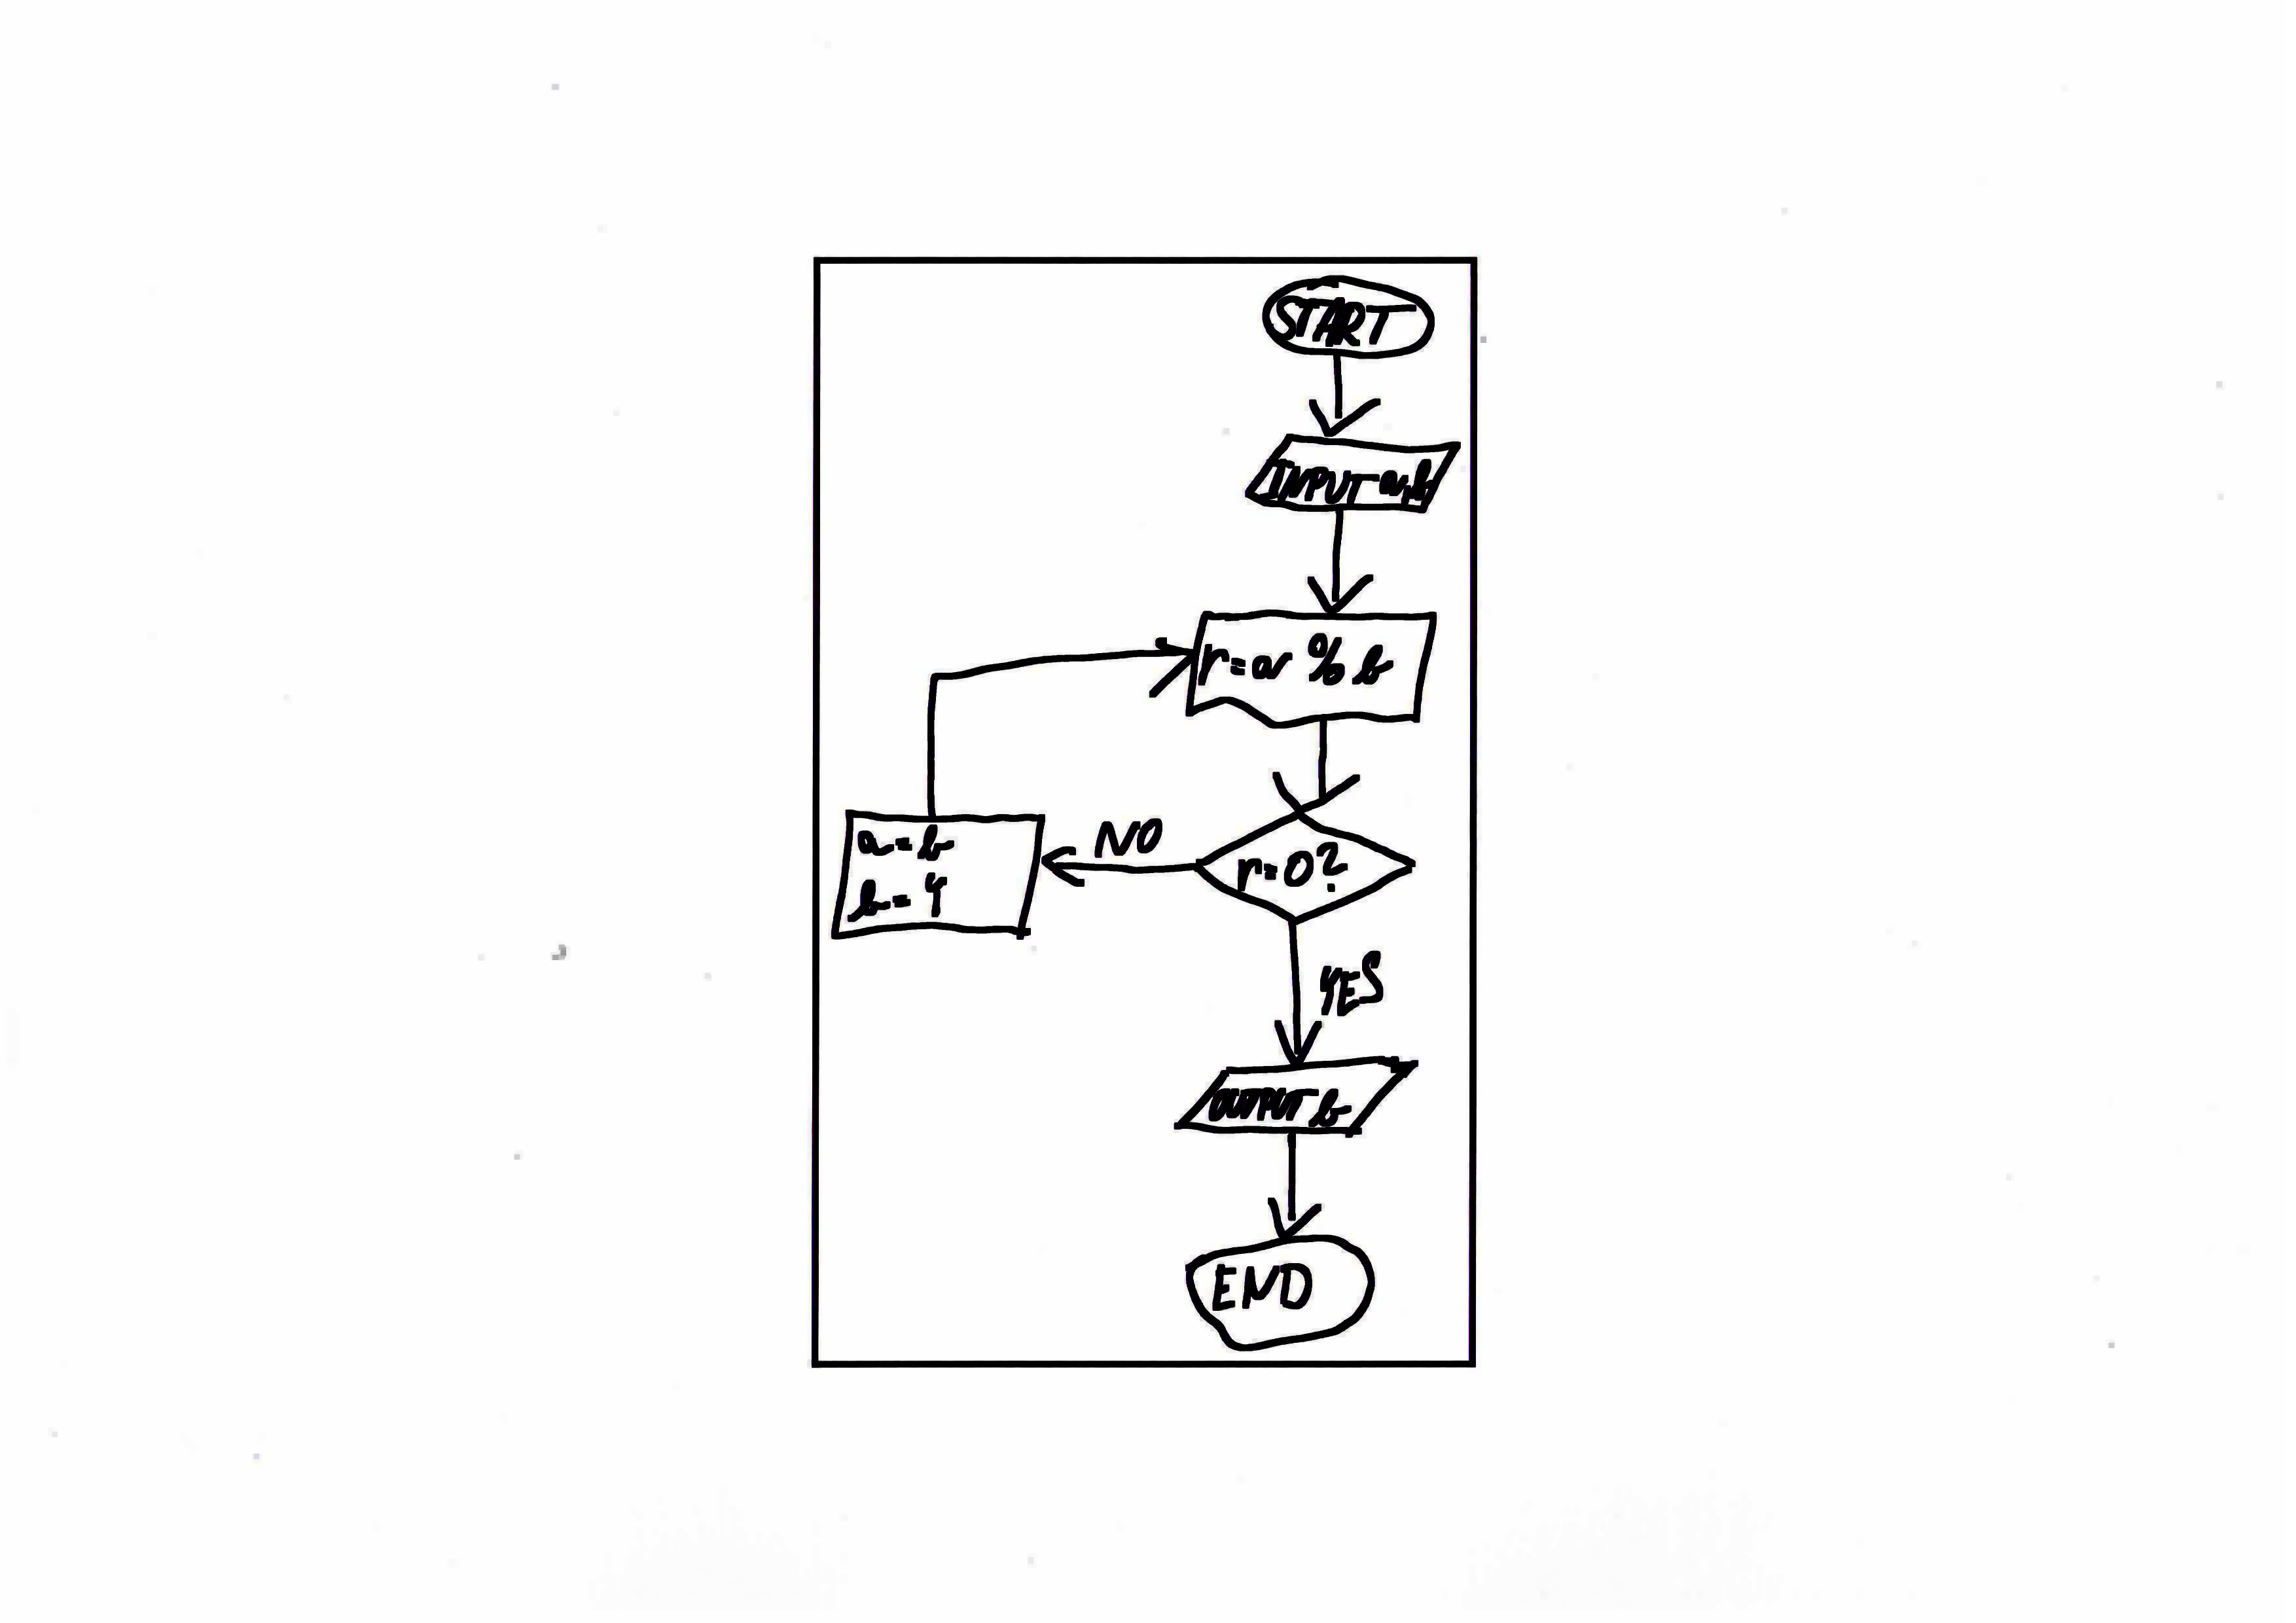 START
INPUT a,b
r=a % b
r=0?
NO
a=b
b=4
YES
OUTPUT b
END